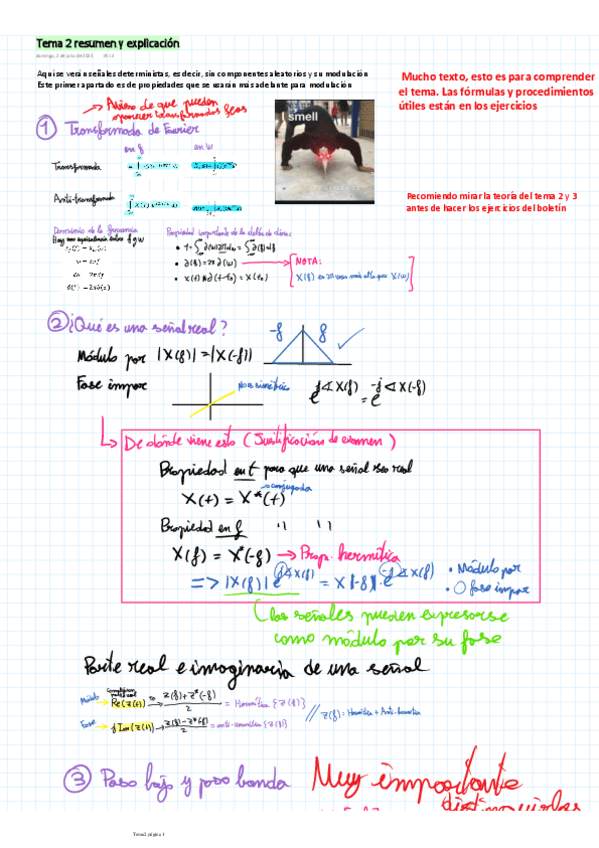 Tema 2 resumen y explicación
Aqui se verán señales deterministas, es decir, sin componentes aleatorios y su modulación
Este primer apartado es de propiedades que se usarán más adelante para modulación
Mucho texto, esto es para comprender
el tema. Las fórmulas y procedimientos
útiles están en los ejercicios
Recomiendo mirar la teoría del tema 2 y 3
antes de hacer los ejercicios del boletín
smell
→ Aviso de que pueden
aparecer transformadas feas
① Transformada de Fourier
en f en w
Transformada
Anti-transformada
Dominio de la frecuencia
Hay una equivalencia entre f y w
Propiedad importante de la delta de dirac
NOTA:
② ¿Qué es una señal real?
-f f
Módulo par |X(f)| = |X(-f)|
Fase impar
No es simétrica
e^{j∡X(f)} = e^{-j∡X(-f)}
De dónde viene esto (Justificación de examen)
Propiedad en t para que una señal sea real
X(t) = X*(t)
→ conjugada
Propiedad en f " "
X(f) = X*(-f) → Prop. hermítica
=> |X(f)| e^{j∡X(f)} = X|-f|·e^{-j∡X(-f)}
• Módulo par
• O fase impar
las señales pueden expresarse
como módulo por su fase
Parte real e imaginaria de una señal
Módulo → Re(Z(t)) → Z(f)+Z*(-f) / 2 = Hermítica {Z(f)}
Fase → j Im(Z(t)) → Z(f)-Z*(-f) / 2 = anti-hermítica {Z(f)}
// Z(f) = Hermítica + Anti-hermítica
③ Paso bajo y paso banda
Muy importante
distinguirlas
Tema2 página 1